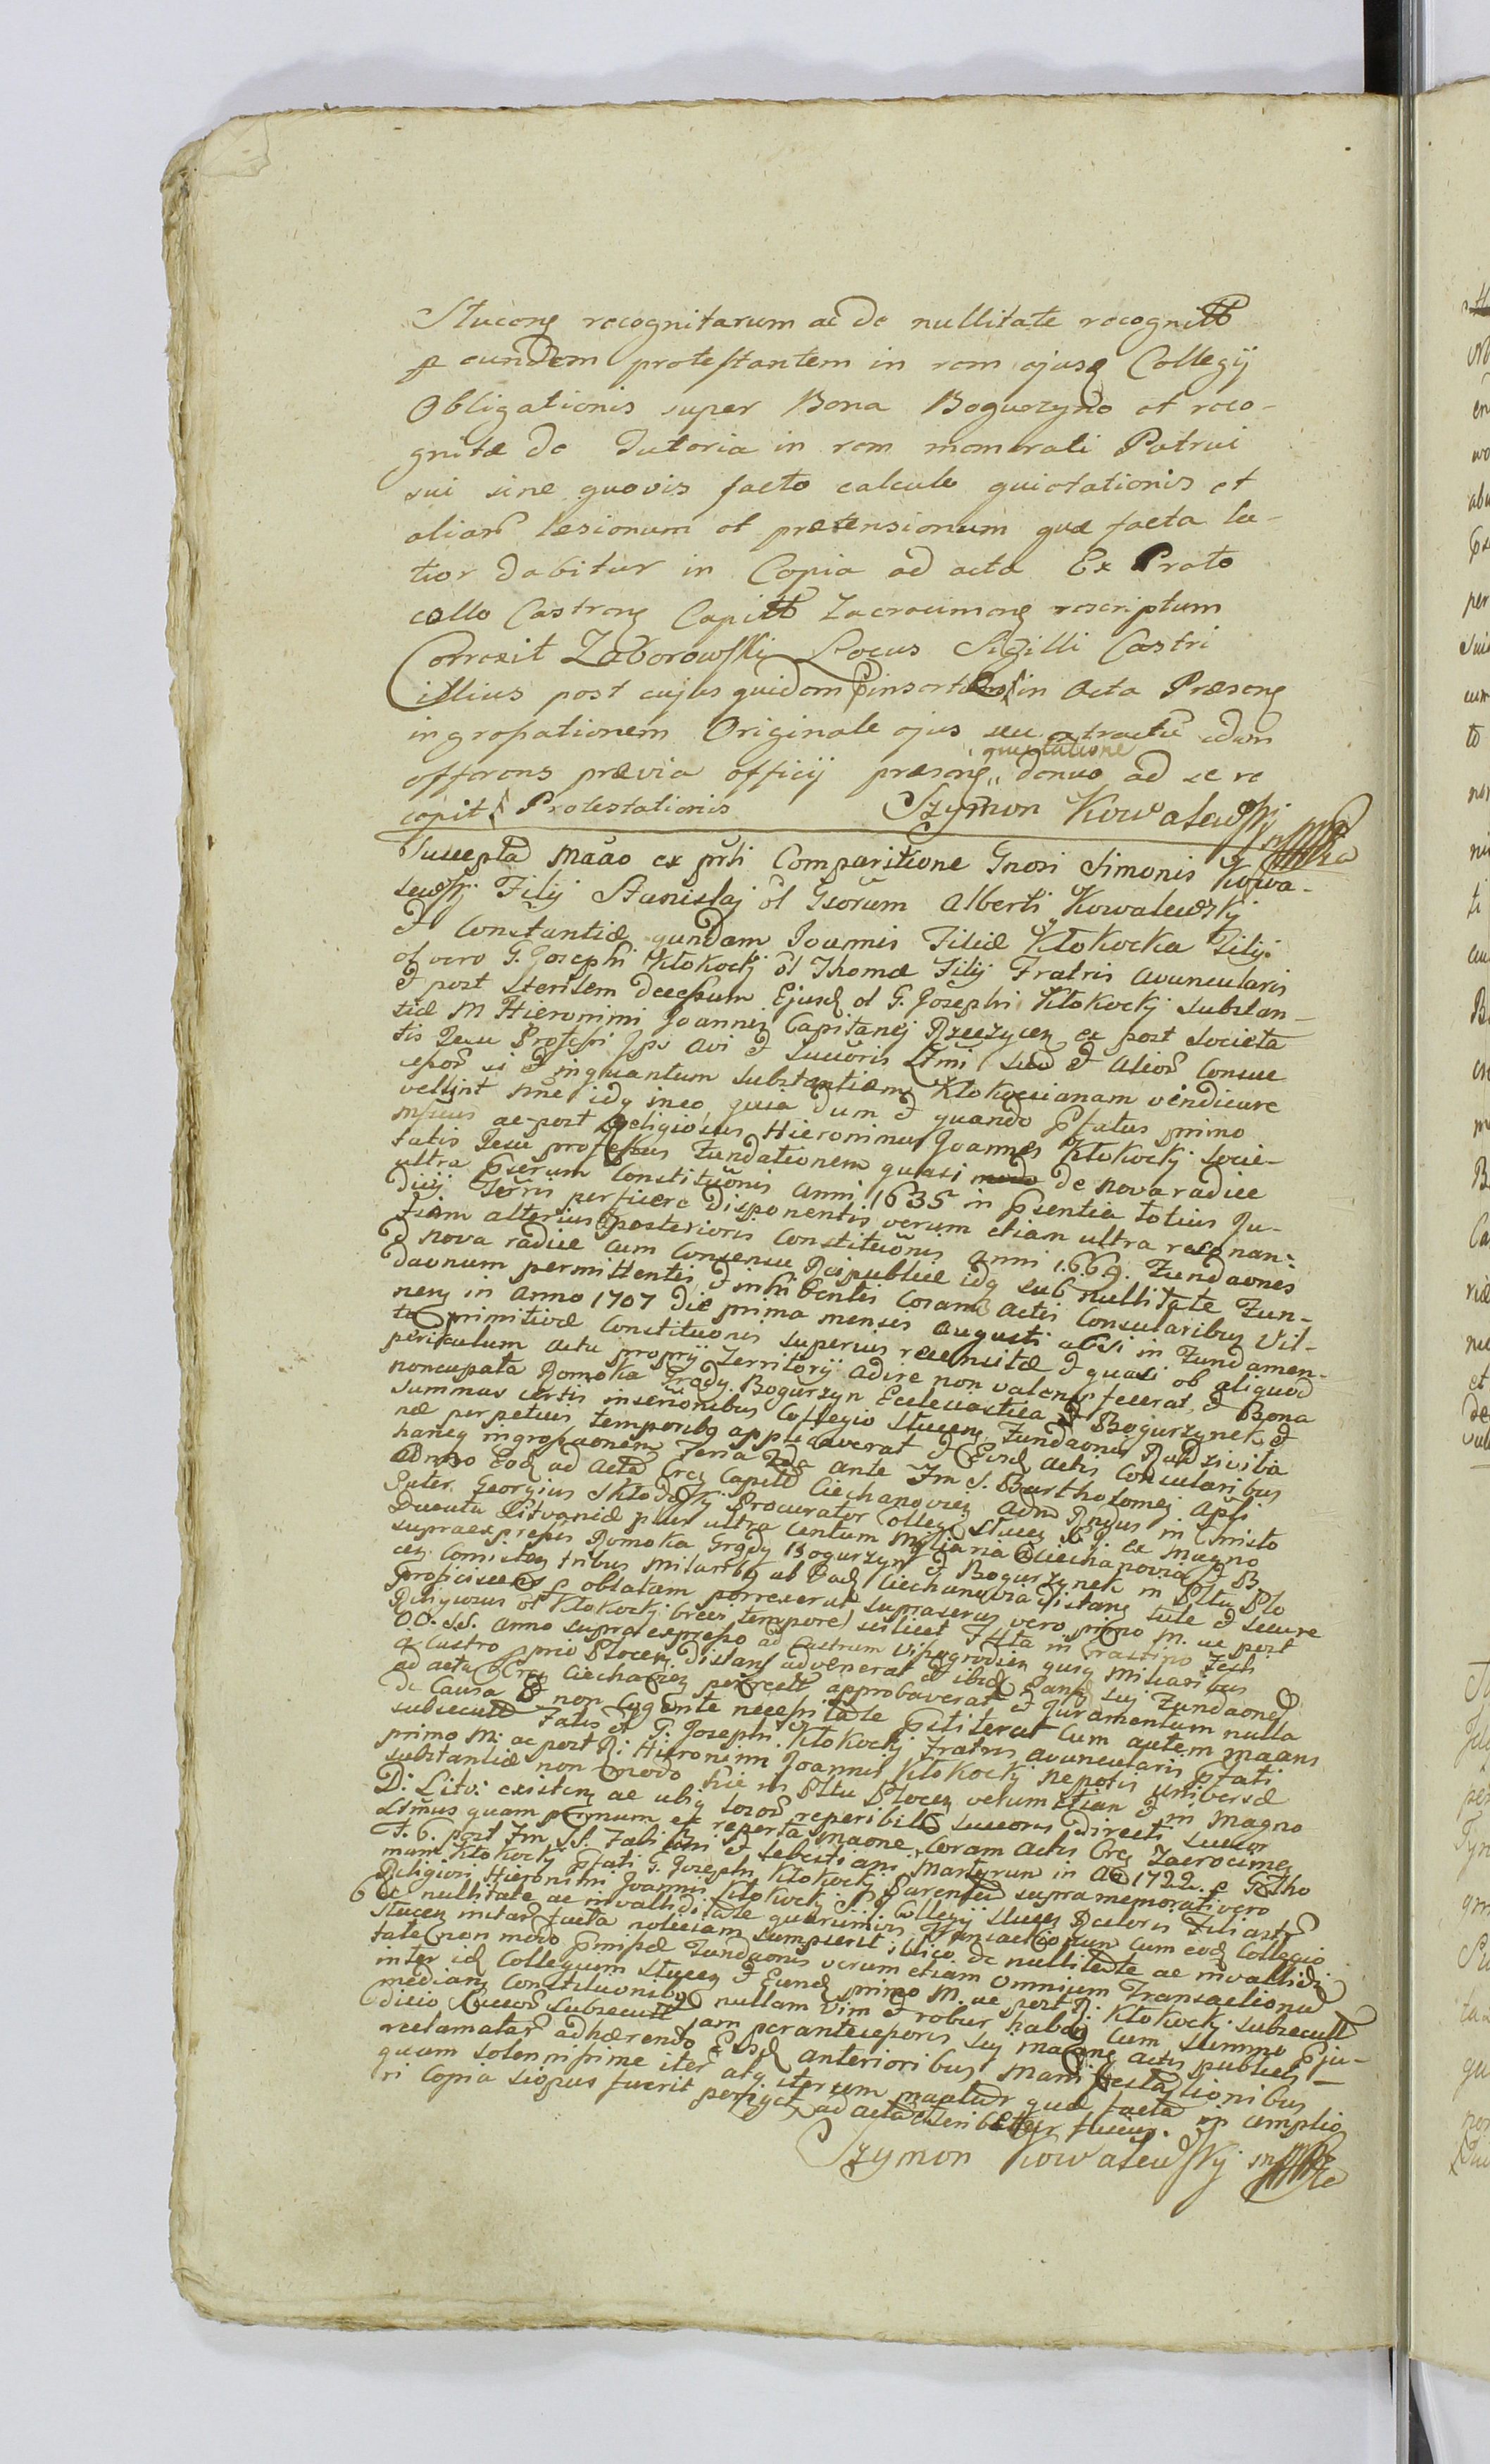 Stucens recognitarum ac de nullitate recognitt
p eundem protestantem in rem ejusq Collegij
Obligationis super Bona Bogurzyno et reco-
gnitæ de Tutoria in rem memorati Patrui
sui sine quovis facto calculo quietationis et
aliarũ læsionum et prætensionum quæ facta la-
tior dabitur in Copia ad acta Ex Proto
collo Castreng Capitt Zacrocimeng rescriptum
Correxit Zaborowski Locus Sigilli Castri
illius post cujus quidem in Acta Præseng
ingrossationem Originale ejus seu extractũ idem
offerens prævia officij præseng quietatione denuo ad se re
cepit Protestationis Szymon Kowalewskj mppria
Suscepta Maão ex prłi Comparitione Gnosi Simonis Kowa-
lewskj Filij Stanislaj ol Gsorum Alberti Kowalewskj
et Constantiæ qundam Joannis Filiæ Kłokocka Filij
ol vero G. Josephi Kłokockj ol Thomæ Filij Fratris avuncularis
et post sterilem decessum Ejusd ol G. Josephi Kłokockj substan-
tiæ M Hieronimi Joannis Capitanej Rzeczycen ex post Societa
tis Jesu Professi Avi et Succoris Ltmi suo et alior Consuc
cessor si et inquantum substantiam Kłokoccianam vendicare
vellint sine idq ineo quia dum et quando Pfatus primo
Mficus ac post Religiosus Hieronimus Joannes Kłokockj Socie-
tatis Jesu professus Fundationem quasi de nova radice
ultra Constituõnis anni 1635 in Psentia totius Ju-
dicij Terris perficere disponentis verum etiam ultra resonan-
tiam alterius posterioris Constituõnis anni 1669. Fundaones
d nova radice cum Consensu Reipublicæ idq sub nullitate Fun-
daonum permittentis et inhibentis Coram Actis Consularibus Vil-
nens in Anno 1707 die prima mensis Augusti absi in Fundamen-
to primitivæ Constituonis superius recensitæ et quasi ob aliquod
periculum actu proprij Territorij adire non valens fecerat, et Bona
noncupata Romoka Grady Bogurzyn Ecclesiastica et Bogurzynek et
summas certis inscriõnibus Collegio Stucens Fundaonis Radzivilia
næ perpetuis temporibq applicaverat et Eisd Actis Consularibus
haneq ingrossaonem Feria 2da ante Fm S. Barthosomej Apłi
Anno Eod ad Acta Crs Capitłt Ciechanovien Adm Rndus in Christo
Pater Georgius Skłodowskj Procurator Colleg Stucen S J ex Magno
Ducatu Litvaniæ plus ultra Centum Milliaria Ciechanovia et B
supraexpressis Romoka Grądy Bogurzyn et Bogurzynek in Płtu Plo
cen Consisten tribus Miliaribq ab Ead Ciechanovia distang tute et secure
proficiscens p oblatam porrexerat supraserius vero primo M. ac post
Religiosus ol Kłokockj brevi tempore scilicet Fta in Crastino Festi
O.O. S.S. anno supra expresso ad Castrum Wyszogrodien quinq Miliaribus
a Castro prio Plocen distans advenerat et ibid sui Fundaones
ad acta Crs Ciechanovien approbaverat et Juramentum nulla
de Causa et non Cogente necessitate Pstiterat Cum autem maans
subsecutt Fatis ol G. Josephi Kłokockj Fratris avuncularis Pfati
primo M: ac post R: Hieronimi Joannis Kłokockj Nepotis universæ
substantiæ non modo hic in Płtu Płocen verum etiam et in Magno
D: Litv: existen ac ubiq locor reperibilis Succoris directi Succor
Ltimus quam primum ex reperta maone Coram Actis Crs Zacrocimen
F. 6. post Fm S.S. Fabiani et Sebastiani Martyrum in Ao 1722. p Gotho
mam Kłokockj Pfati G. Josephi Kłokockj Parentem supramemorati vero
Religiosi Hieronimi Joannis Kłokockj S J Collegij Stucen Rectoris Filiastr
de nullitate ac invaliditate quorumvis Transactionum cum eod Collegio
Stucen initar facta noticiam sumpserit illico de nullitate ac invallidi
tate non modo Pmissæ Fundaonis verum etiam omnium Transactionu
inter id Collegium Stucen et Eund primo M. ac post R. Kłokockj subsecutt
median Constitutionibq nullam vim et robur haben Cum summo Pju-
dicio Succor subsecutt jam per antecessoris sui maone actis publicis
reclamatar adhærendo Eisd anterioribus Manifestationibus
quam solennissime iter atq iterum maatur quæ facta in amplio
ri Copia si opus fuerit ad acta
Szymon Kowalewskj mppria